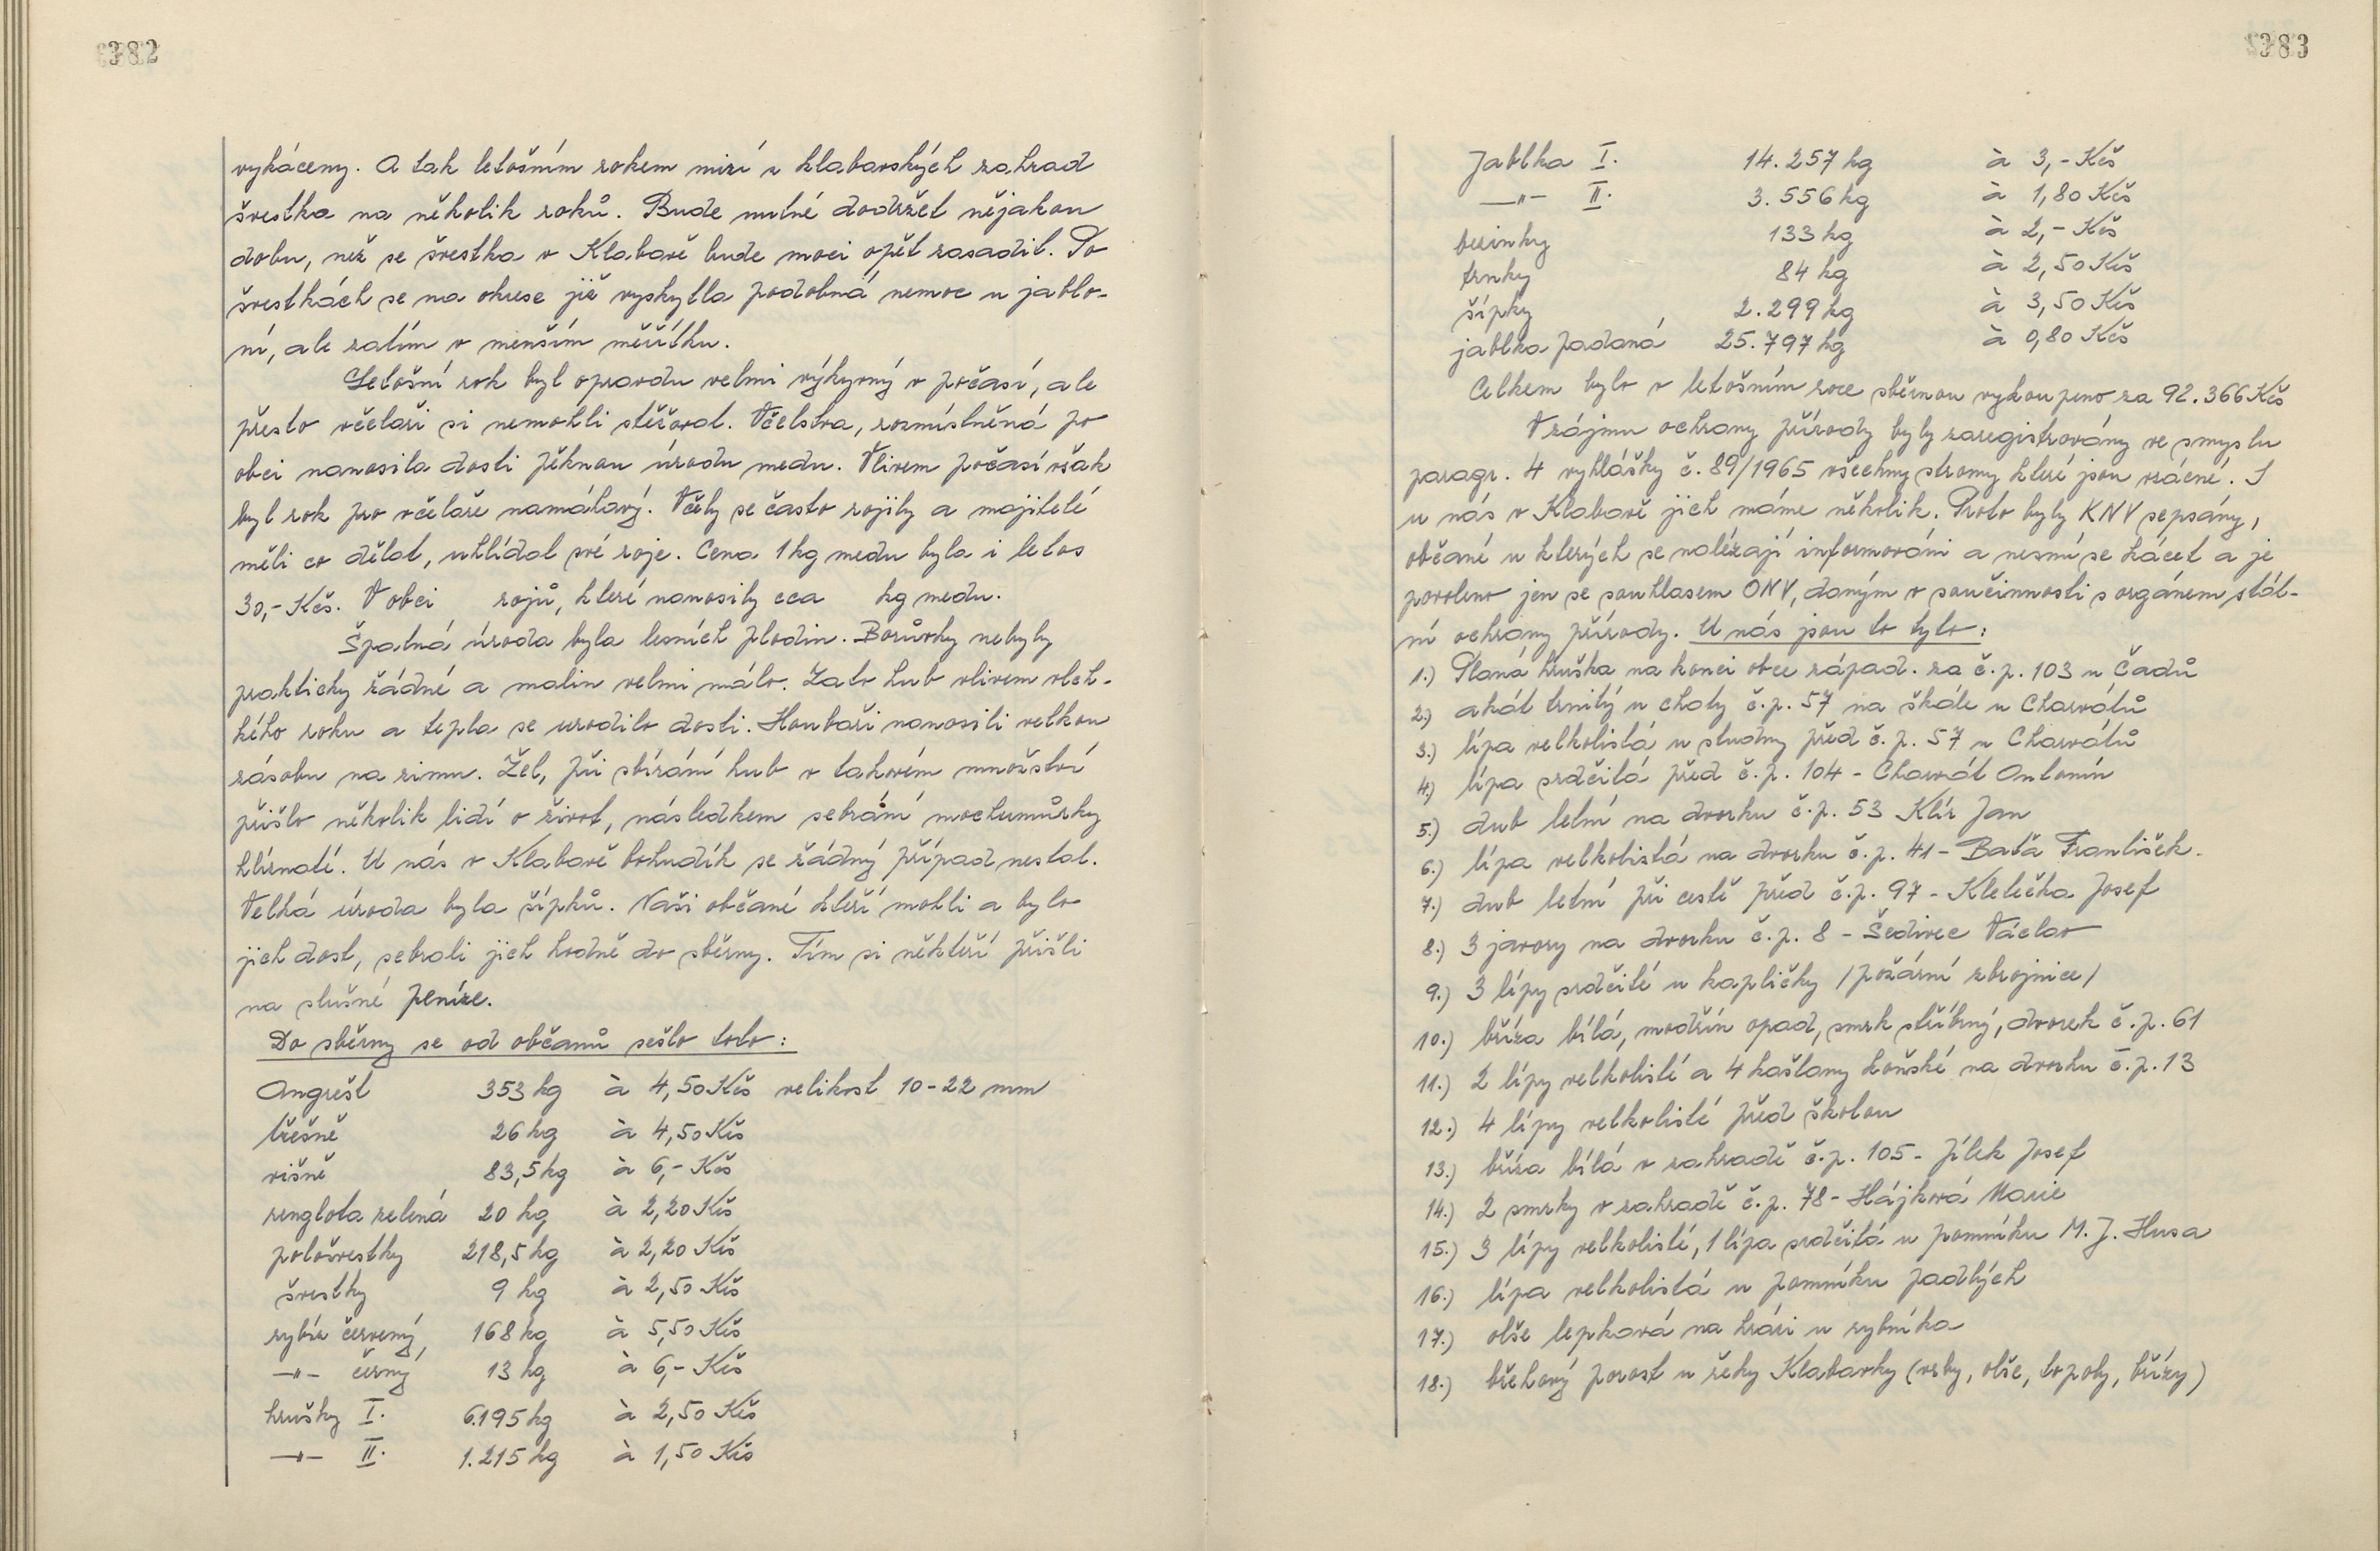 382
vykáceny. A tak letošním rokem mizí z klabavských zahrad
švestka na několik roků. Bude nutné dodržet nějakou
dobu, než se švestka v Klabavě bude moci opět zasadit. Po
švestkách se na okrese již vyskytla podobná nemoc u jablo-
ní, ale zatím v menším měřítku.
Letošní rok byl opravdu velmi výkyvný v počasí, ale
přesto včelaři si nemohli stěžovat. Včelstva, rozmístněná po
obci nanosila dosti pěknou úrodu medu. Vlivem počasí však
byl rok pro včelaře namáhavý. Včely se často rojily a majitelé
měli co dělat, uhlídat své roje. Cena 1 kg medu byla i letos
30,- Kčs. V obci rojů, které nanosily cca kg medu.
Špatná úroda byla lesních plodin. Borůvky nebyly
prakticky žádné a malin velmi málo. Zato hub vlivem vlh-
kého roku a tepla se urodilo dosti. Houbaři nanosili velkou
zásobu na zimu. Žel, při sbírání hub v takovém množství
přišlo několik lidí o život, následkem sebrání mochumůrky
hlíznaté. U nás v Klabavě bohudík se žádný případ nestal.
Velká úroda byla šípků. Naši občané kteří mohli a bylo
jich dost, sebrali jich hodně do sběrny. Tím si někteří přišli
na slušné peníze.
Do sběrny se od občanů sešlo toto:
Angrešt 353 kg à 4,50 Kčs velikost 10-22 mm
třešně 26 kg à 4,50 Kčs
višně 83,5 kg à 6,- Kčs
renglota zelená 20 kg à 2,20 Kčs
pološvestky 218,5 kg à 2,20 Kčs
švestky 9 kg à 2,50 Kčs
rybíz červený 168 kg à 5,50 Kčs
—"— černý 13 kg à 6,- Kčs
hrušky I. 6.195 kg à 2,50 Kčs
—"— II. 1.215 kg à 1,50 Kčs
383
Jablka I. 14.257 kg à 3,- Kčs
—"— II. 3.556 kg à 1,80 Kčs
bezinky 133 kg à 2,- Kčs
trnky 84 kg à 2,50 Kčs
šípky 2.299 kg à 3,50 Kčs
jablka padaná 25.797 kg à 0,80 Kčs
Celkem bylo v letošním roce sběrnou vykoupeno za 92.366 Kčs
V zájmu ochrany přírody byly zaregistrovány ve smyslu
paragr. 4 vyhlášky č. 89/1965 všechny stromy které jsou vzácné. I
u nás v Klabavě jich máme několik. Proto byly KNV sepsány,
občané u kterých se nalézají informováni a nesmí se kácet a je
povoleno jen se souhlasem ONV, daným v součinnosti s orgánem stát-
ní ochrany přírody. U nás jsou to tyto:
1.) Planá hruška na konci obce západ. za č.p. 103 u Čadů
2.) akát trnitý u chaty č.p. 57 na skále u Charvátů
3.) lípa velkolistá u studny před č.p. 57 u Charvátů
4.) lípa srdčitá před č.p. 104 - Charvát Antonín
5.) dub letní na dvorku č.p. 53 Klír Jan
6.) lípa velkolistá na dvorku č.p. 41 - Baťa František.
7.) dub letní při cestě před č.p. 97 - Kletečka Josef
8.) 3 javory na dvorku č.p. 8 - Šedivec Václav
9.) 3 lípy srdčité u kapličky /požární zbrojnice/
10.) bříza bílá, modřín opad, smrk stříbrný, dvorek č.p. 61
11.) 2 lípy velkolisté a 4 kaštany koňské na dvorku č.p. 13
12.) 4 lípy velkolisté před školou
13.) bříza bílá v zahradě č.p. 105 - Jílek Josef
14.) 2 smrky v zahradě č.p. 78 - Hájková Marie
15.) 3 lípy velkolisté, 1 lípa srdčitá u pomníku M. J. Husa
16.) lípa velkolistá u pomníku padlých
17.) olše lepkavá na hrázi u rybníka
18.) břehový porost u řeky Klabavky (vrby, olše, topoly, břízy)